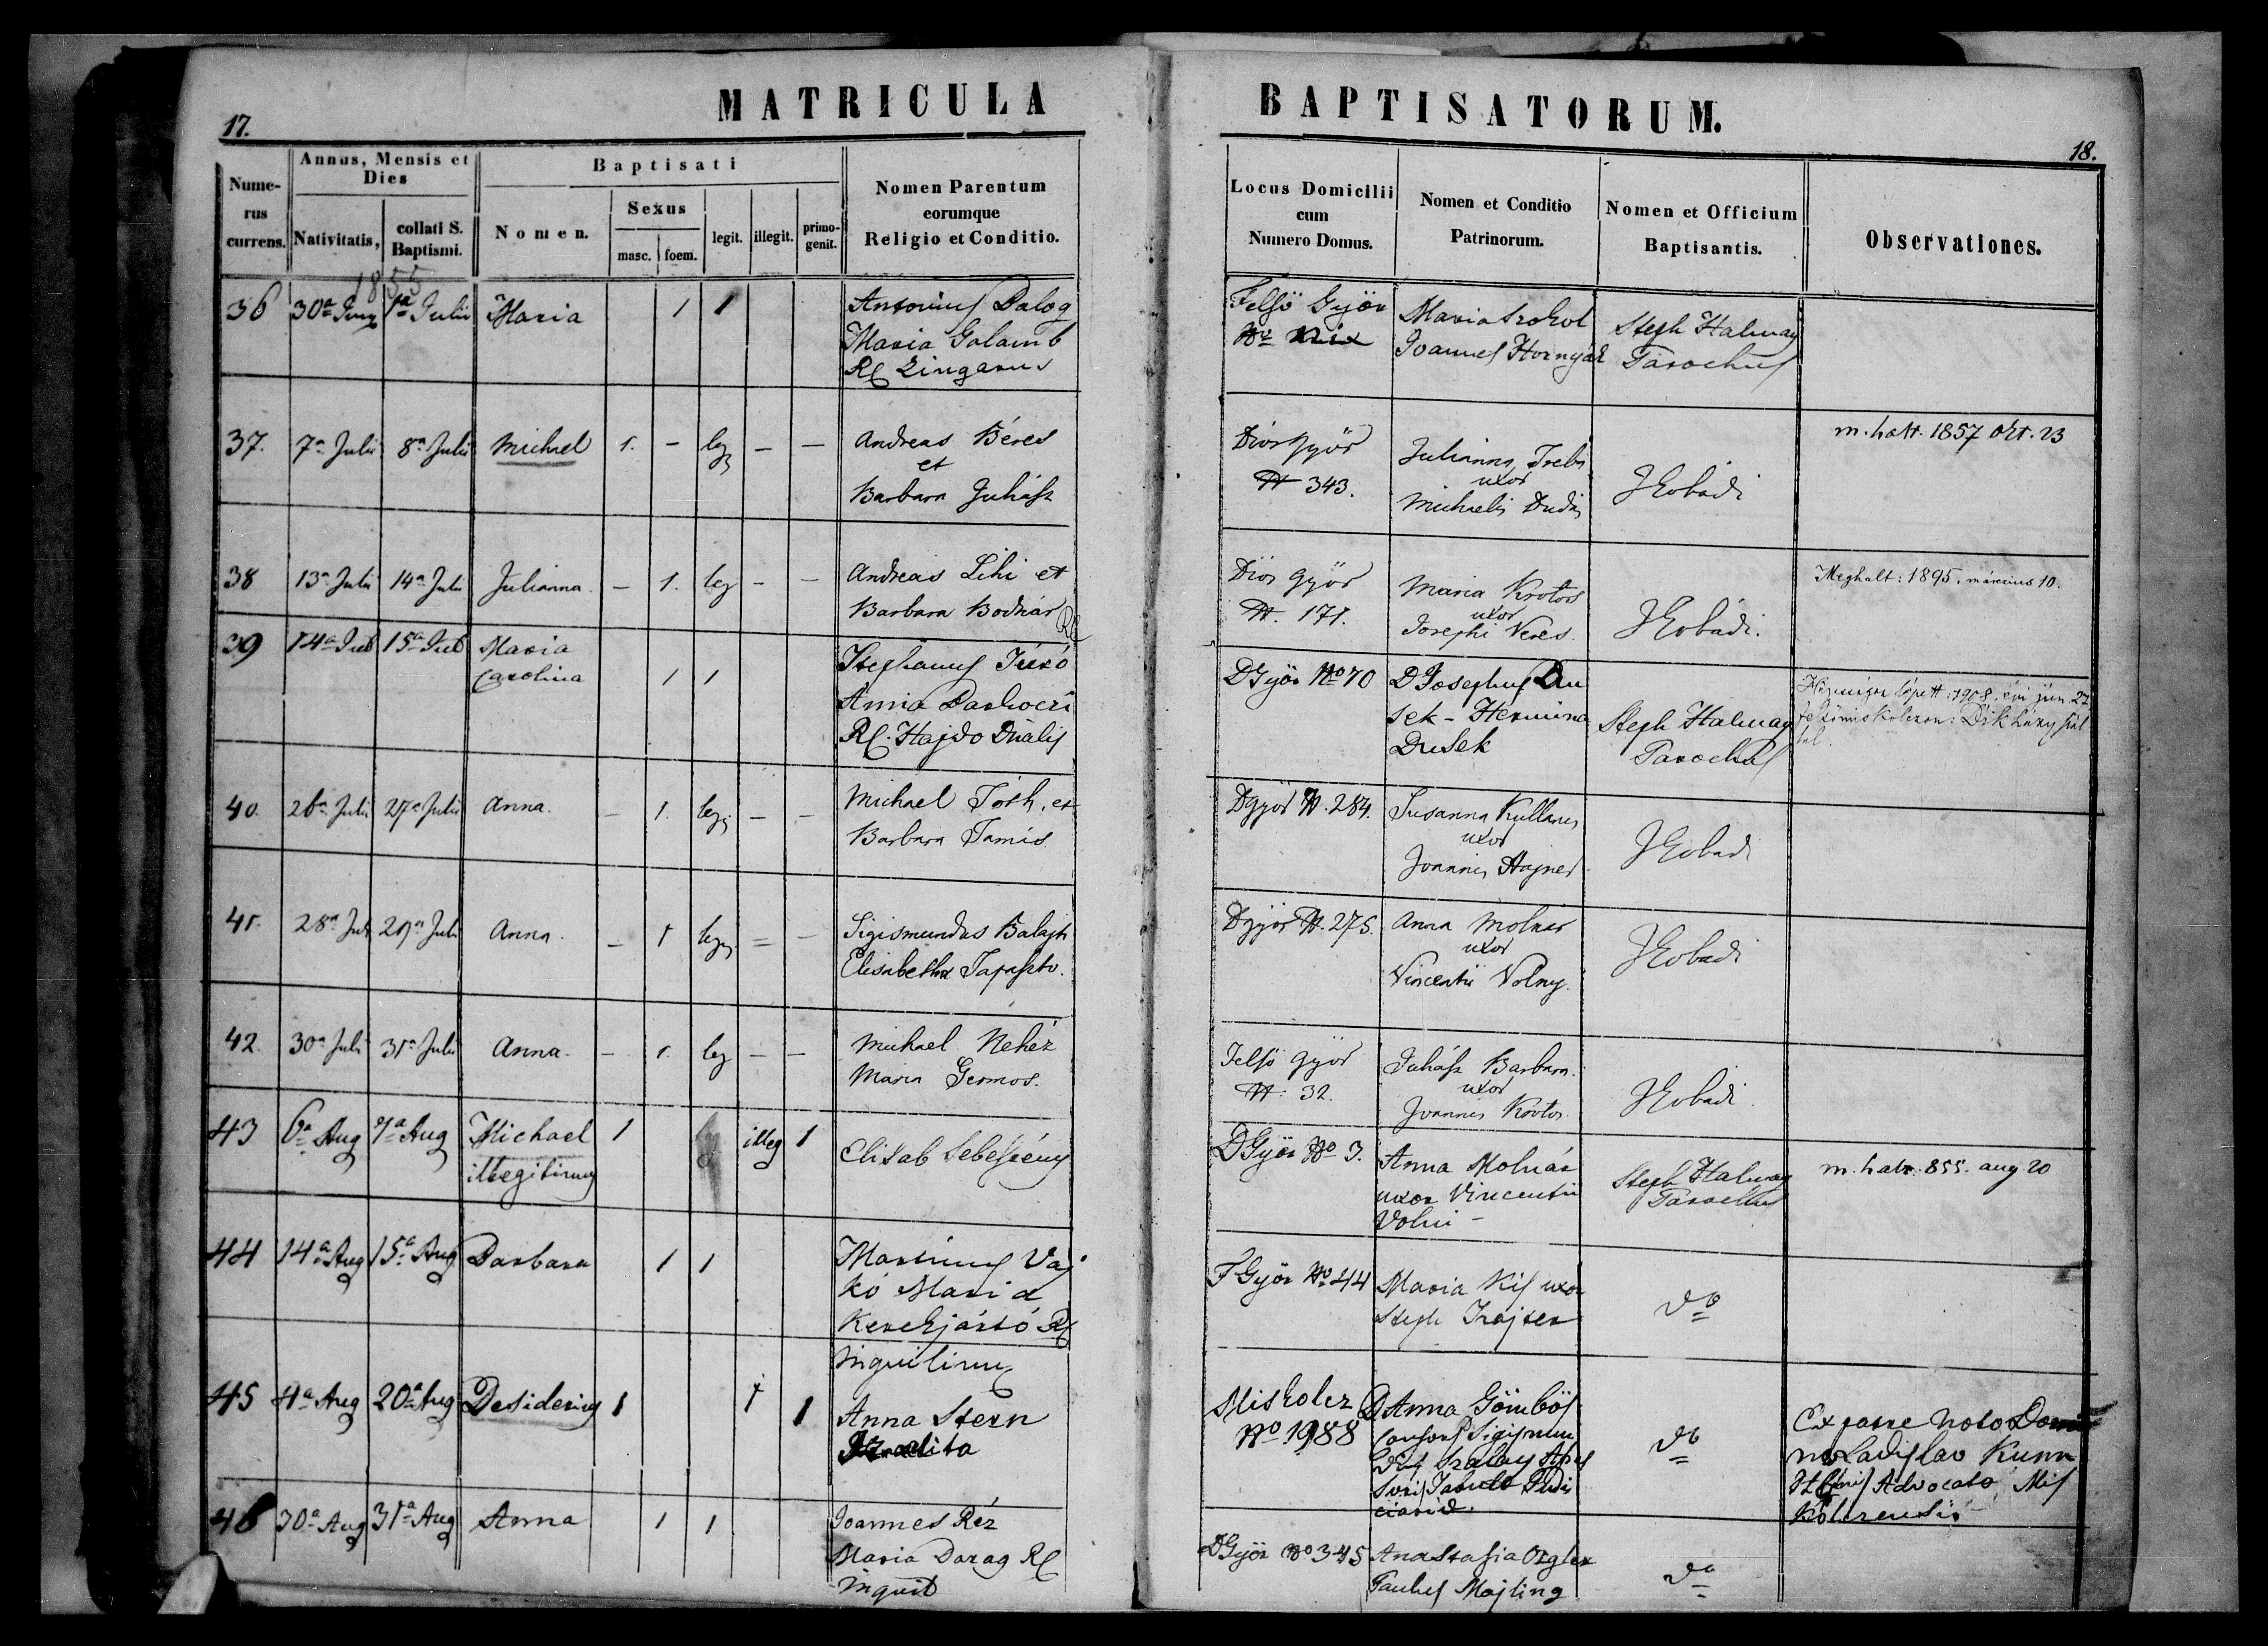 MATRICULA BAPTISATORUM.
17.
18.
Numerus currens.
Annus, Mensis et Dies
Nativitatis,
collati S. Baptismi.
Baptisati
Nomen.
Sexus
masc.
foem.
legit.
illegit.
primogenit.
Nomen Parentum
eorumque
Religio et Conditio.
Locus Domicilii
cum
Numero Domus.
Nomen et Conditio
Patrinorum.
Nomen et Officium
Baptisantis.
Observationes.
1855
36 30a Juny 1a Julii Maria 1 1 Antonius Balog
Maria Galamb
RC Zingarus
Felsö Györ
No
Maria
Joannes Hornyák
Steph Halmay
Parochus
37. 7a Julii 8a Julii Michael 1. - leg - - Andreas Béres
et
Barbara Juhász
Diós györ
N 343.
Julianna
uxor
Michaelis Dudás
J Kobádi
m. halt. 1857 okt. 23
38 13a Julii 14a Julii Julianna - 1. leg - - Andreas Lihi et
Barbara Bodnár RC
Diós györ
N. 171.
Maria Krotos
uxor
Josephi Veres.
J Kobádi.
Meghalt: 1895. március 10.
39 14a Jul 15a Jul Maria
Carolina
1 1
Stephanus
Anna
RC. Hajdo
DGyör No 70
D Josephus Du
sek - Hermina
Dusek
Steph Halmay
Parochus
1908. évi jún 27
40. 26a Julii 27a Julii Anna. - 1. leg - - Michael Tóth, et
Barbara Tamás.
Dgyör N. 284.
Susanna
uxor
Joannis Hajner
J Kobádi
41. 28a Jul 29a Juli Anna. - 1 leg = - Sigismundus Balajti
Elisabetha Tapaszto.
Dgyör N. 275.
Anna Molnár
uxor
Vincentii Volny.
J Kobádi
42. 30a Juli 31a Julii Anna. - 1. leg - - Michael Nehéz
Maria Germos.
Felsö györ
N. 32.
Juhász Barbara.
uxor
Joannis Krotos.
J Kobádi.
43 6a Aug 7a Aug Michael
illegitimus
1 illeg 1
Elisab Sebestény
DGyör No 3.
Anna Molnár
uxor Vincentii
Volni -
Steph Halmay
Parochus
m. halt. 855. aug 20
44 14a Aug 15a Aug Barbara 1 1 Martinus Vaj
kó Maria
Kerekjártó RC
Inquilinus
F Györ No 44
Maria Kis uxor
Steph Trajter
do
45 4a Aug 20a Aug Desiderius 1 1 1 Anna Stern
Izraelita
Miskolcz
No 1988
D Anna Gömbös
consors D Sigismun
di Szalay Asses
soris Tabulae Judi
ciariae.
do
Ex patre noto Domi
no Ladislao Kun
Advocato Mis
kolczensis
46 30a Aug 31a Aug Anna 1 1 Joannes Réz
Maria Darag RC
inquil
DGyör No 345
Anastasia
Paulus Majling
do